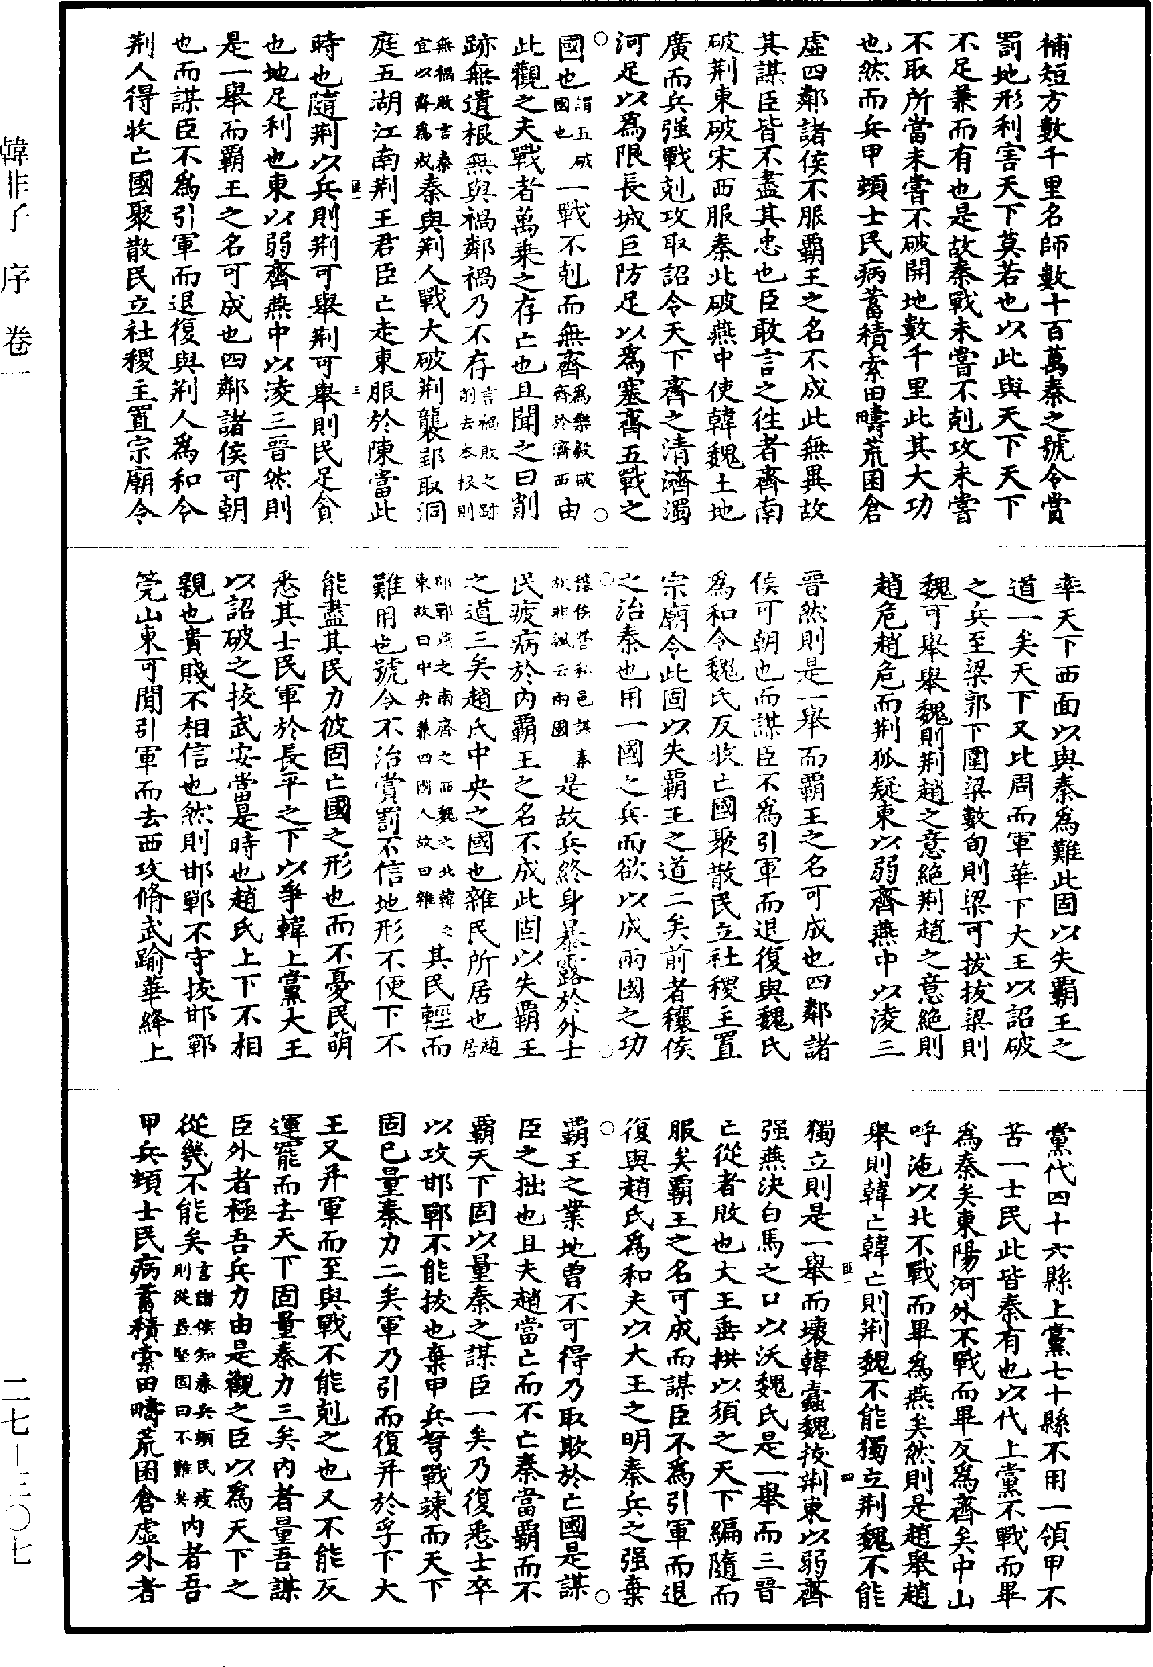 補短方數千里名師數十百萬秦之號令賞
罰地形利害天下莫若也以此與天下天下
不足兼而有也是故秦戰未嘗不剋攻未嘗
不取所當未嘗不破開地數千里此其大功
也然而兵甲頓士民病蓄積索田疇荒囷倉
虛四鄰諸侯不服霸王之名不成此無異故
其謀臣皆不盡其忠也臣敢言之往者齊南
破荆東破宋西服秦北破燕中使韓魏土地
廣而兵强戰剋攻取詔令天下齊之清濟濁
河足以爲限長城巨防足以爲塞齊五戰之
國也謂五破國也一戰不剋而無齊爲樂毅破齊於濟西由
此觀之夫戰者萬乘之存亡也且聞之曰削
跡無遺根無與禍鄰禍乃不存言禍敗之跡削去本根則
無禍敗言秦宜以齊爲戒秦與荆人戰大破荆襲郢取洞
庭五湖江南荆王君臣亡走東服於陳當此
時也隨荆以兵則荆可舉荆可舉則民足貪
也地足利也東以弱齊燕中以淩三晉然則
是一舉而霸王之名可成也四鄰諸侯可朝
也而謀臣不爲引軍而退復與荆人爲和令
荆人得收亡國聚散民立社稷主置宗廟令
率天下西面以與秦爲難此固以失霸王之
道一矣天下又比周而軍華下大王以詔破
之兵至梁郭下圍梁數旬則梁可拔拔梁則
魏可舉舉魏則荆趙之意絕荆趙之意絕則
趙危趙危而荆狐疑東以弱齊燕中以淩三
晉然則是一舉而霸王之名可成也四鄰諸
侯可朝也而謀臣不爲引軍而退復與魏氏
爲和令魏氏反收亡國聚散民立社稷主置
宗廟令此固以失霸王之道二矣前者穰侯
之治秦也用一國之兵而欲以成兩國之功
穰侯營私邑謀秦故非諷云兩國是故兵終身暴露於外士
民疲病於內霸王之名不成此固以失霸王
之道三矣趙氏中央之國也雜民所居也趙居
邯鄲燕之南齊之西魏之北韓之東故曰中央兼四國人故曰雜其民輕而
難用也號令不治賞罰不信地形不便下不
能盡其民力彼固亡國之形也而不憂民萌
悉其士民軍於長平之下以爭韓上黨大王
以詔破之拔武安當是時也趙氏上下不相
親也貴賤不相信也然則邯鄲不守拔邯鄲
筦山東可閒引軍而去西攻脩武踰華絳上
黨代四十六縣上黨七十縣不用一領甲不
苦一士民此皆秦有也以代上黨不戰而畢
爲秦矣東陽河外不戰而畢反爲齊矣中山
呼沲以北不戰而畢爲燕矣然則是趙舉趙
舉則韓亡韓亡則荆魏不能獨立荆魏不能
獨立則是一舉而壞韓蠹魏拔荆東以弱齊
强燕決白馬之口以沃魏氏是一舉而三晉
亡從者敗也大王垂拱以須之天下編隨而
服矣霸王之名可成而謀臣不爲引軍而退
復與趙氏爲和夫以大王之明秦兵之强棄
霸王之業地曾不可得乃取欺於亡國是謀
臣之拙也且夫趙當亡而不亡秦當霸而不
霸天下固以量秦之謀臣一矣乃復悉士卒
以攻邯鄲不能拔也棄甲兵弩戰竦而天下
固已量秦力二矣軍乃引而復并於孚下大
王又并軍而至與戰不能剋之也又不能反
運罷而去天下固量秦力三矣內者量吾謀
臣外者極吾兵力由是觀之臣以爲天下之
從幾不能矣言諸侯知秦兵頓民疲則從益堅固曰不難矣內者吾
甲兵頓士民病蓄積索田疇荒囷倉虛外者
韓非子 序 卷一
二七—三〇七